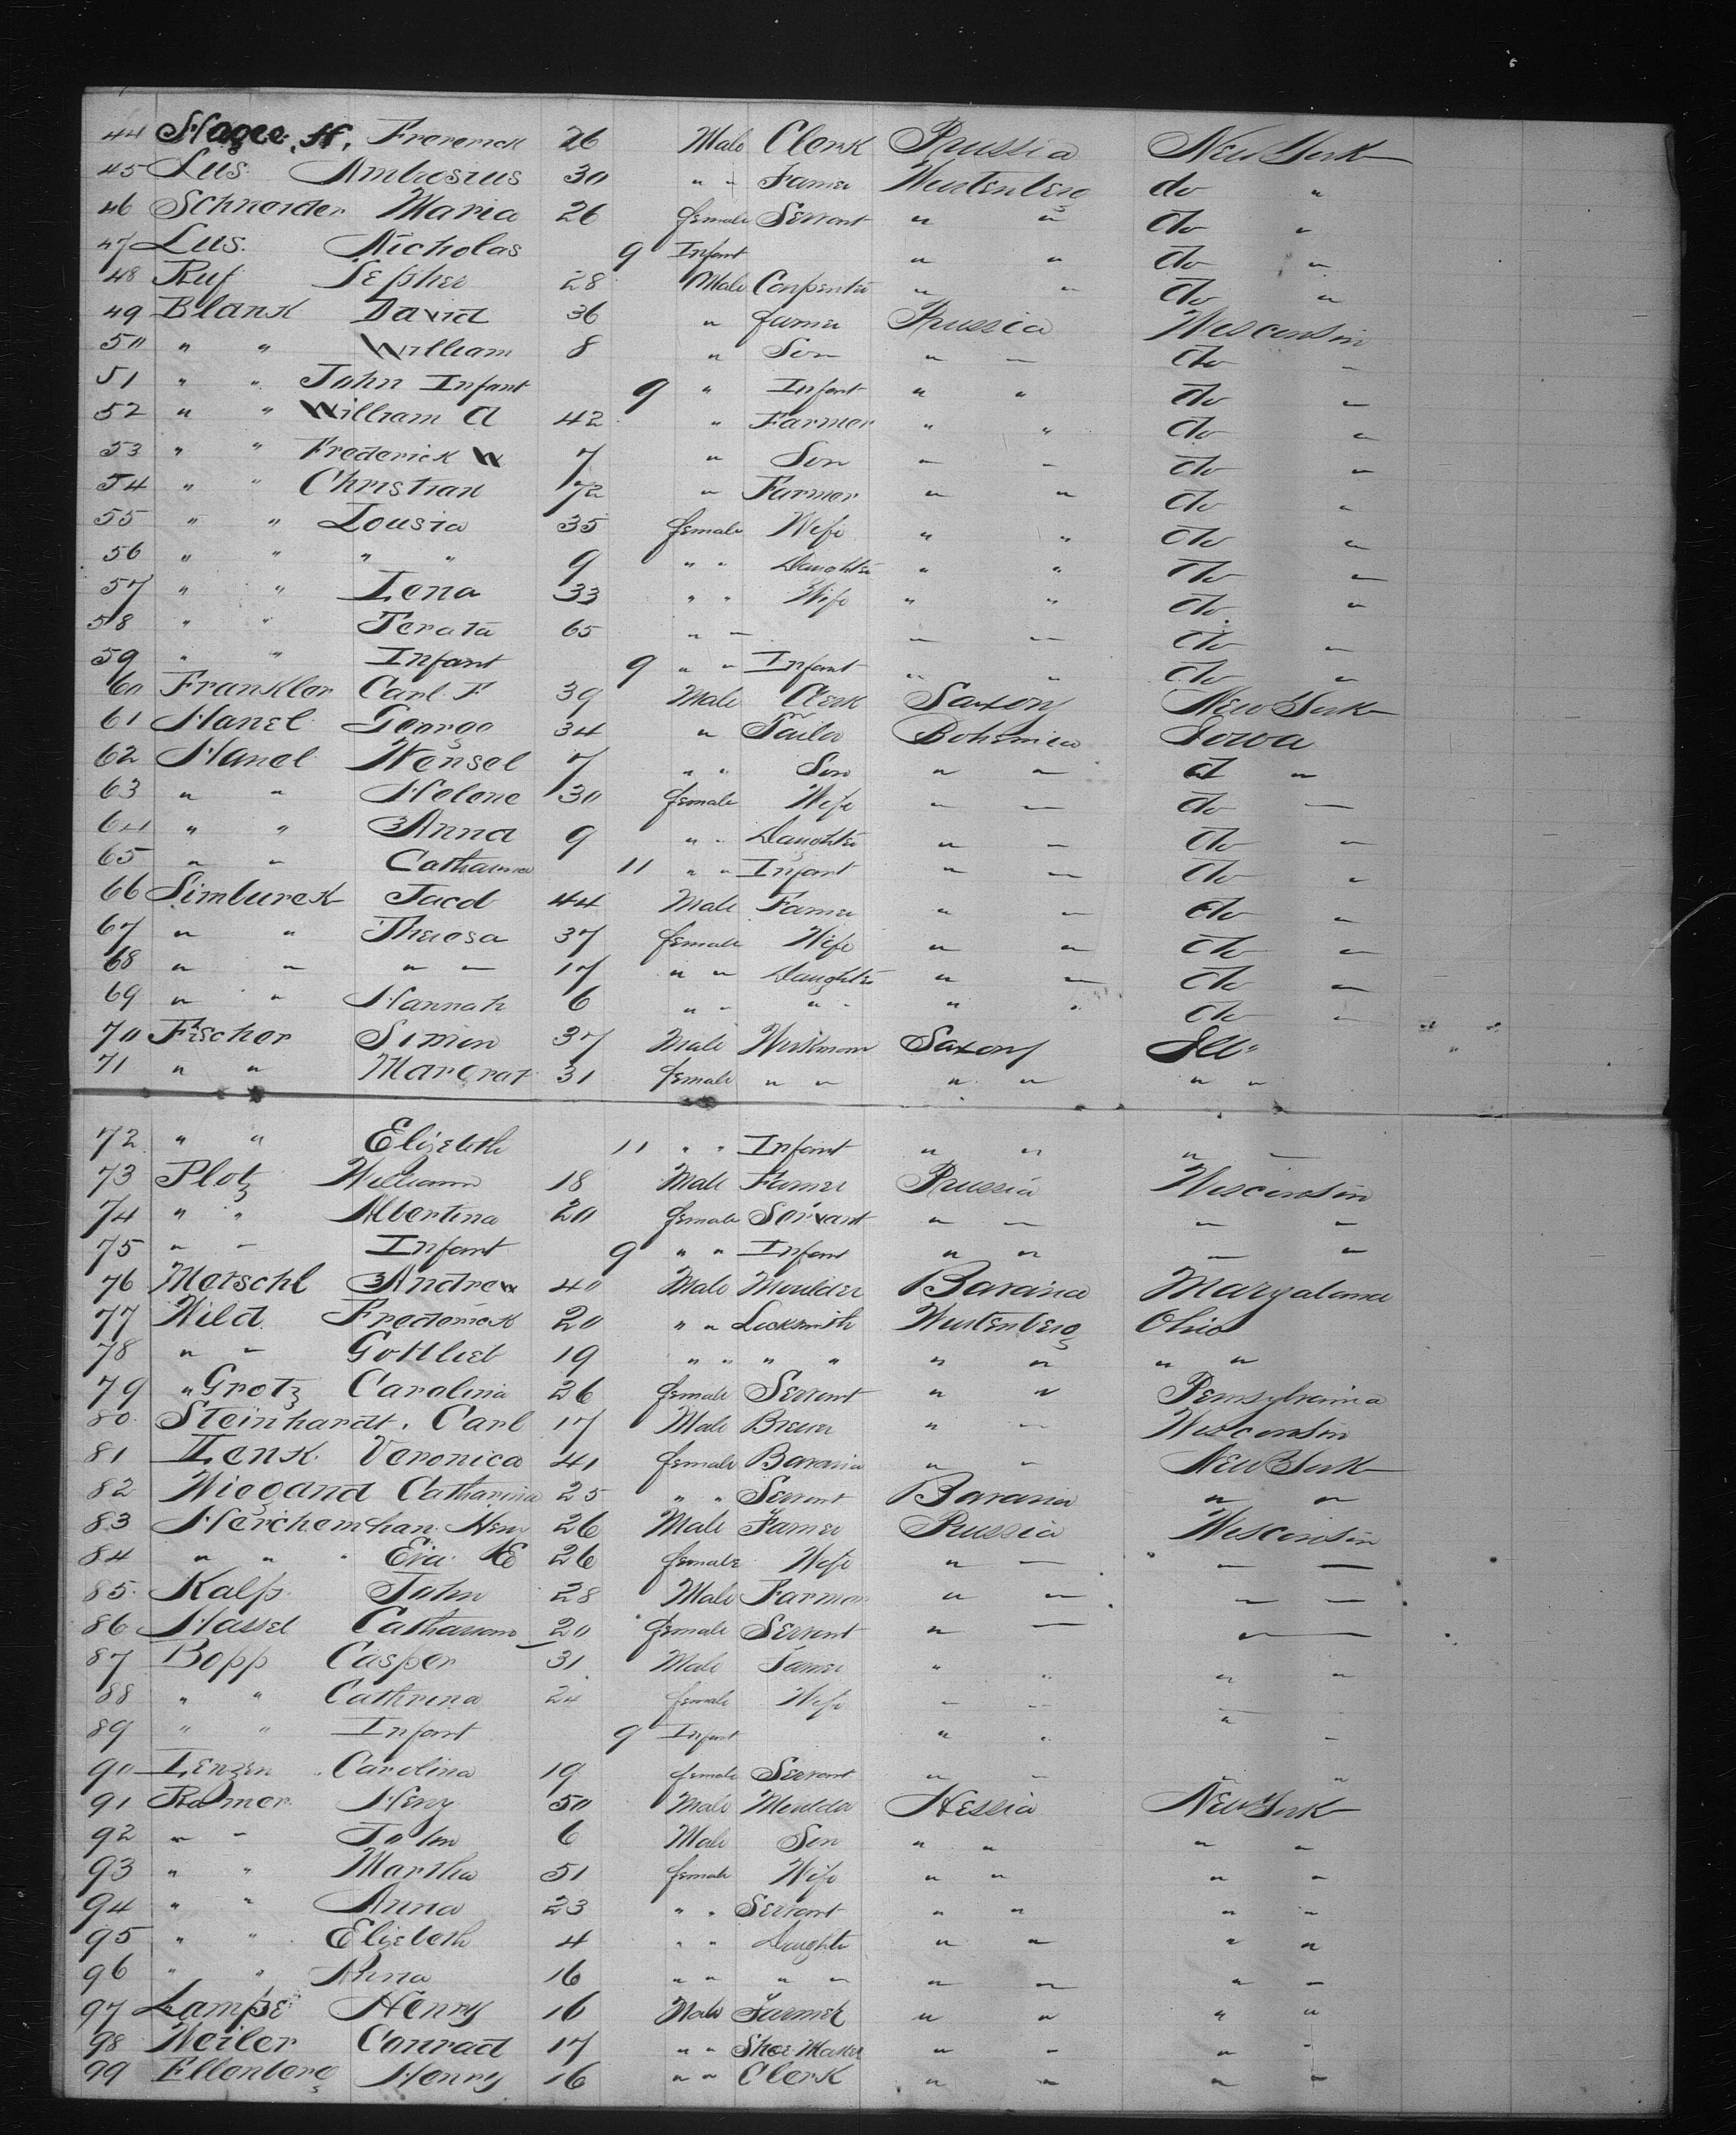 44 Hagee, H. Frererick 26 Male Clerk Prussia New York
45 Lus. Ambrosius 30 " " Famer Wurtenberg do "
46 Schneider Maria 26 female Servant " " do "
47 Lus. Nicholas 9 Infant " " do "
48 Ruf 28 Male Carpenter " " do "
49 Blank David 36 " farmer Prussia Wisconsin
50 " " William 8 " Son " " do "
51 " " John Infant 9 " Infant " " do "
52 " " William A 42 " Farmer " " do "
53 " " Frederick W 7 " Son " " do "
54 " " Christian 72 " Farmer " " do "
55 " " Lousia 35 female Wife " " do "
56 " " " " 9 " " Daughter " " do "
57 " " Lena 33 " " Wife " " do "
58 " " 65 " " " " do "
59 " " Infant 9 " " Infant " " do "
60 Frankler Carl F 39 Male Clerk Saxony New York
61 Hanel George 34 " Tailor Bohemia Iowa
62 Hanel Wensel 7 " " Son " " d "
63 " " Helene 30 female Wife " " do "
64 " " Anna 9 " " Daughter " " do "
65 " " Catharina 11 " " Infant " " do "
66 Simburek Jacd 44 Male Famer " " do "
67 " " Theresa 37 female Wife " " do "
68 " " " " 17 " " Daughter " " do "
69 " " Hannah 6 " " " " " " do "
70 Fischer Simon 37 Male Workman Saxony Ills
71 " " Margrat 31 female " " " " " "
72 " " Elizebeth 11 " " Infant " " " "
73 Plotz William 18 Male Famer Prussia Wisconsin
74 " " Albertina 20 female Servant " " " "
75 " " Infant 9 " " Infant " " " "
76 Metschl Andrew 40 Male Moulder Bavaria Maryaland
77 Wild Frederick 20 " " Locksmith Wurtenberg Ohio
78 " " Gottlieb 19 " " " " " " " "
79 " Grotz Carolina 26 female Servant " " Pensylvaina
80 Steinhardt, Carl 17 Male Brewer " " Wisconsin
81 Lenk Veronica 41 female Bavaria " " New York
82 Wiegand Catharina 25 " " Servent Bavaria " "
83 Herchemhan Heny 26 Male Famer Prussia Wisconsin
84 " " Eva E 26 female Wife " " " "
85 Kalp John 28 Male Farmer " " " "
86 Hassel Catharina 20 female Servent " " " "
87 Bopp Casper 31 Male Famer " " " "
88 " " Cathrina 24 female Wife " " " "
89 " " Infant 9 Infant " " " "
90 Lenzen Carolina 19 female Servant " " " "
91 Ramer Heny 50 Male Moulder Hessia New York
92 " " John 6 Male Son " " " "
93 " " Martha 51 female Wife " " " "
94 " " Anna 23 " " Servant " " " "
95 " " Elizebeth 4 " " Daughter " " " "
96 " " Anna 16 " " " " " " " "
97 Lampe Henry 16 Male Farmer " " " "
98 Weiler Conrad 17 " " Shoe Maker " " " "
99 Ellenberg Henry 16 " " Clerk " " " "